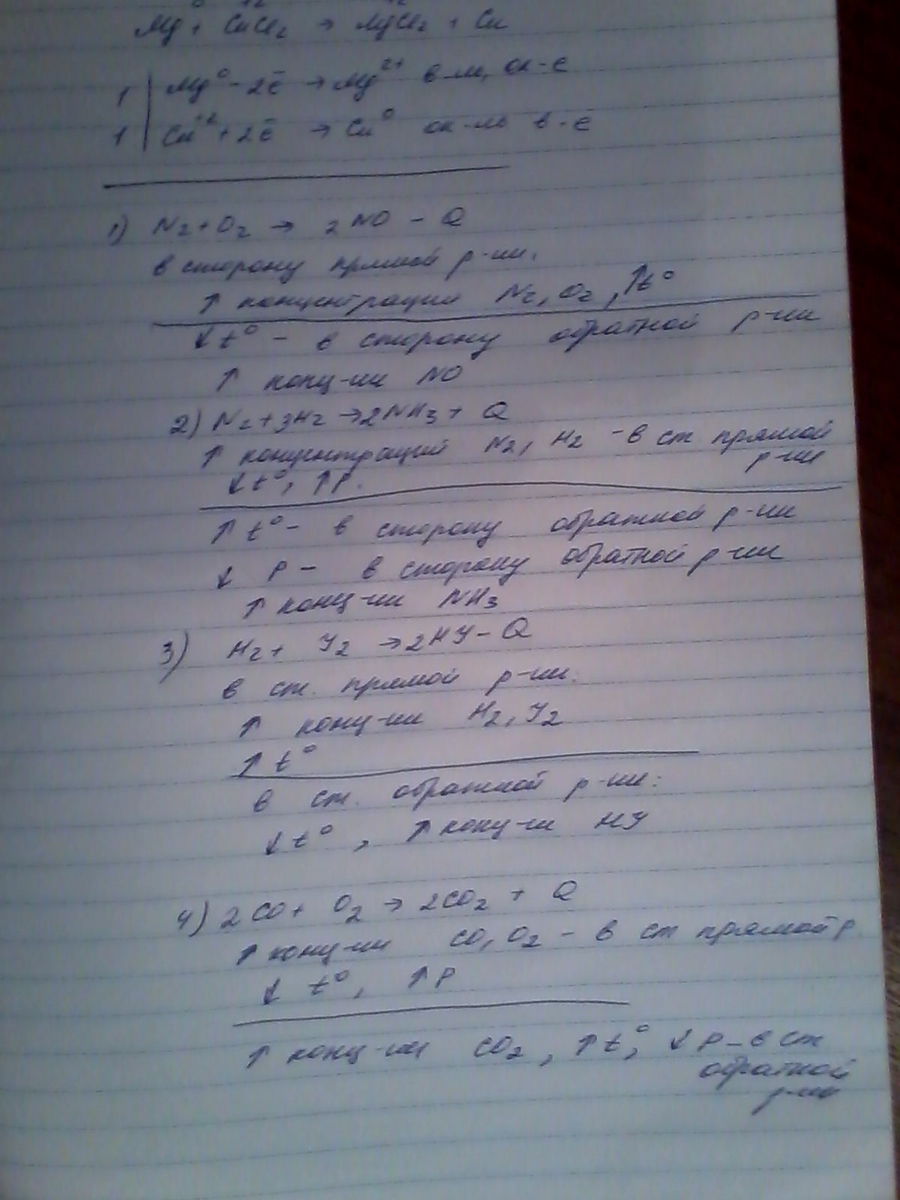 0 +2
Mg + CuCl2 → MgCl2 + Cu
1 | Mg⁰ - 2ē → Mg²⁺ в-ль, ок-е
1 | Cu⁺² + 2ē → Cu⁰ ок-ль в-е
1) N2 + O2 → 2NO - Q
в сторону прямой р-ии:
↑ концентрации N2, O2, ↑t°
↓t° - в сторону обратной р-ии
↑ конц-ии NO
2) N2 + 3H2 → 2NH3 + Q
↑ концентраций N2, H2 - в ст прямой
р-ии
↓t°, ↑P.
↑ t° - в сторону обратной р-ии
↓ P - в сторону обратной р-ии
↑ конц-ии NH3
3) H2 + Y2 → 2HY - Q
в ст. прямой р-ии:
↑ конц-ии H2, Y2
↑ t°
в ст. обратной р-ии:
↓ t°, ↑ конц-ии HY
4) 2CO + O2 → 2CO2 + Q
↑ конц-ии CO, O2 - в ст прямой р
↓ t°, ↑P
↑ конц-ии CO2, ↑t°, ↓P - в ст
обратной
р-ии